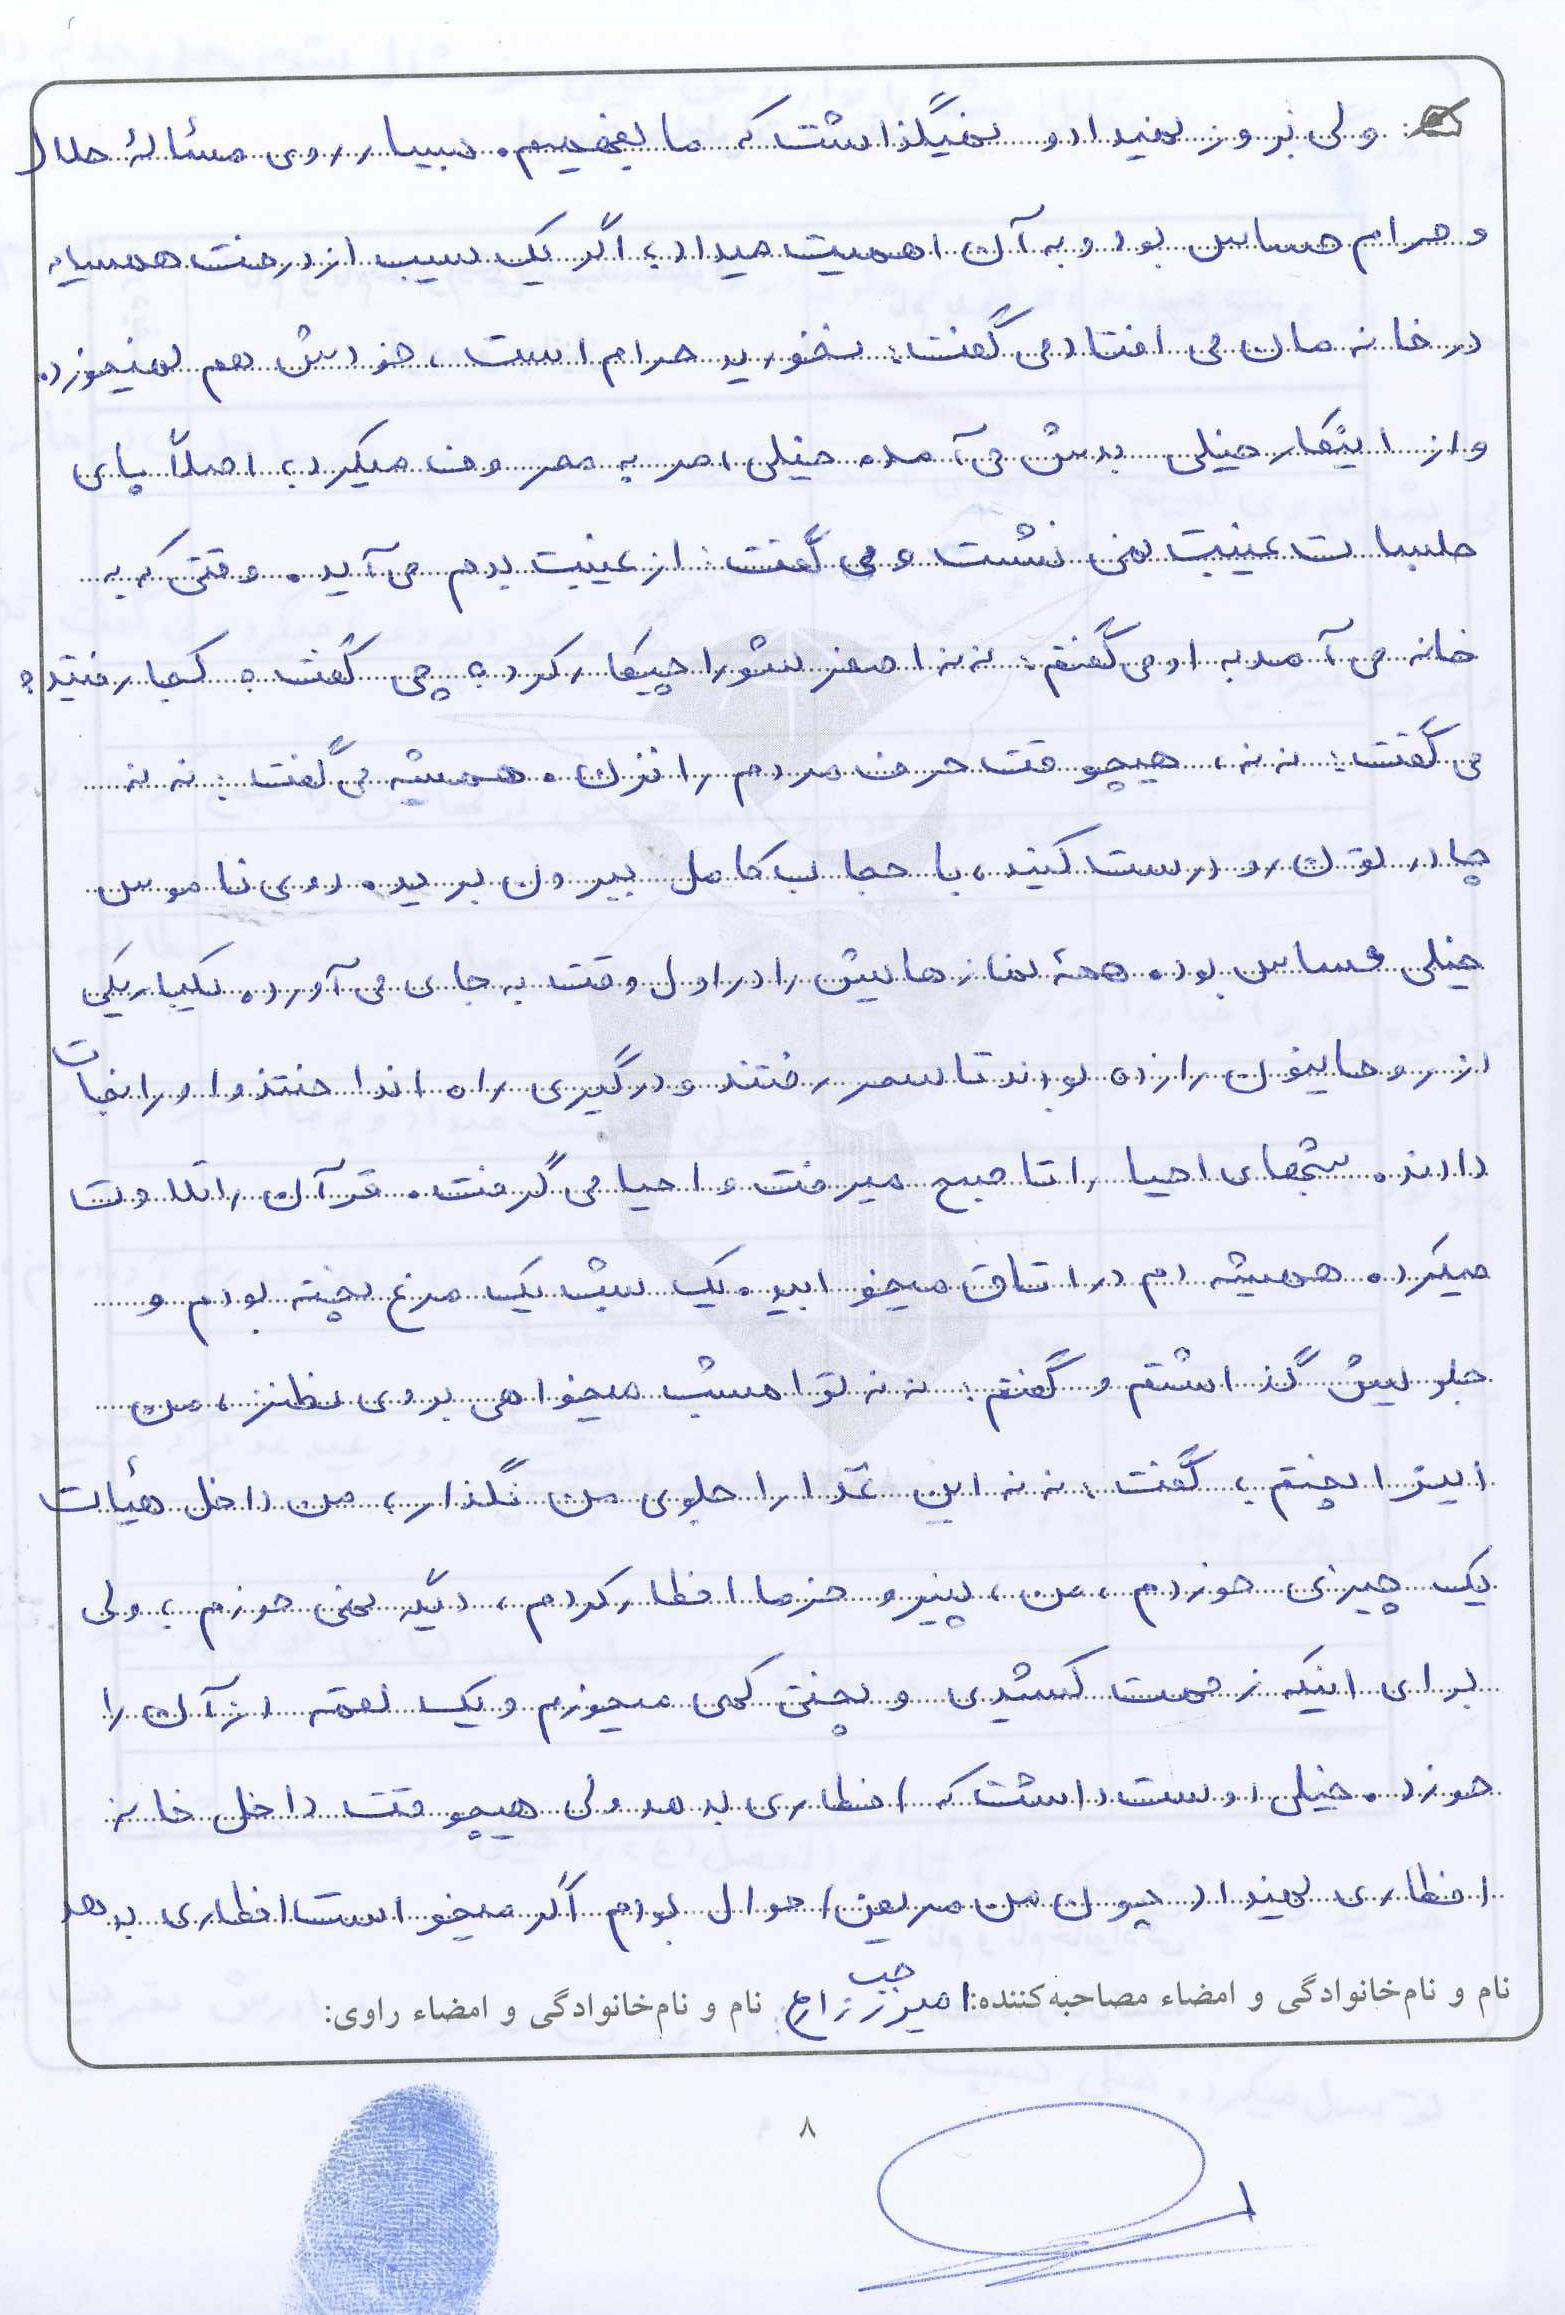 ولی بروز نمیداد و نمیگذاشت که ما بفهمیم. بسیار روی مسئالهٔ حلال
و حرام حساس بود و به آن اهمیت میداد، اگر یک سیب از درخت همسایه
در خانه مان می افتاد می گفت: نخورید حرام است، خودش هم نمیخورد.
و از اینکار خیلی بدش می آمد. خیلی امر به معروف میکرد، اصلاً پای
جلسات غیبت نمی نشست و می گفت: از غیبت بدم می آید. وقتی که به
خانه می آمد به او می گفتم: ننه اصغر شو را چیکار کرد؟ چی گفت؟ کجا رفتید؟
می گفت: ننه، هیچوقت حرف مردم را نزن. همیشه می گفت: ننه
چادرتون رو درست کنید، با حجاب کامل بیرون برید. روی ناموس
خیلی حساس بود. همهٔ نمازهایش را در اول وقت به جای می آورد. یکبار یکی
از روحانیون را زده بودند تا سحر رفتند و درگیری راه انداختند و او را نجات
دادند. شبهای احیا را تا صبح میرفت و احیا می گرفت. قرآن را تلاوت
میکرد. همیشه دم در اتاق میخوابید. یک شب یک مرغ پخته بودم و
جلویش گذاشتم و گفتم: ننه تو امشب میخواهی بروی نطنز، من
اینرا پختم، گفت: ننه این غذا را جلوی من نگذار، من داخل هیأت
یک چیزی خوردم، من، پنیر و خرما افطار کردم، دیگه نمی خورم، ولی
برای اینکه زحمت کشیدی و پختی کمی میخورم و یک لقمه از آن را
خورد. خیلی دوست داشت که افطاری بدهد ولی هیچوقت داخل خانه
افطاری نمیداد چون من مریض احوال بودم اگر میخواست افطاری بدهد
نام و نام‌خانوادگی و امضاء مصاحبه‌کننده: نام و نام‌خانوادگی و امضاء راوی:
۸